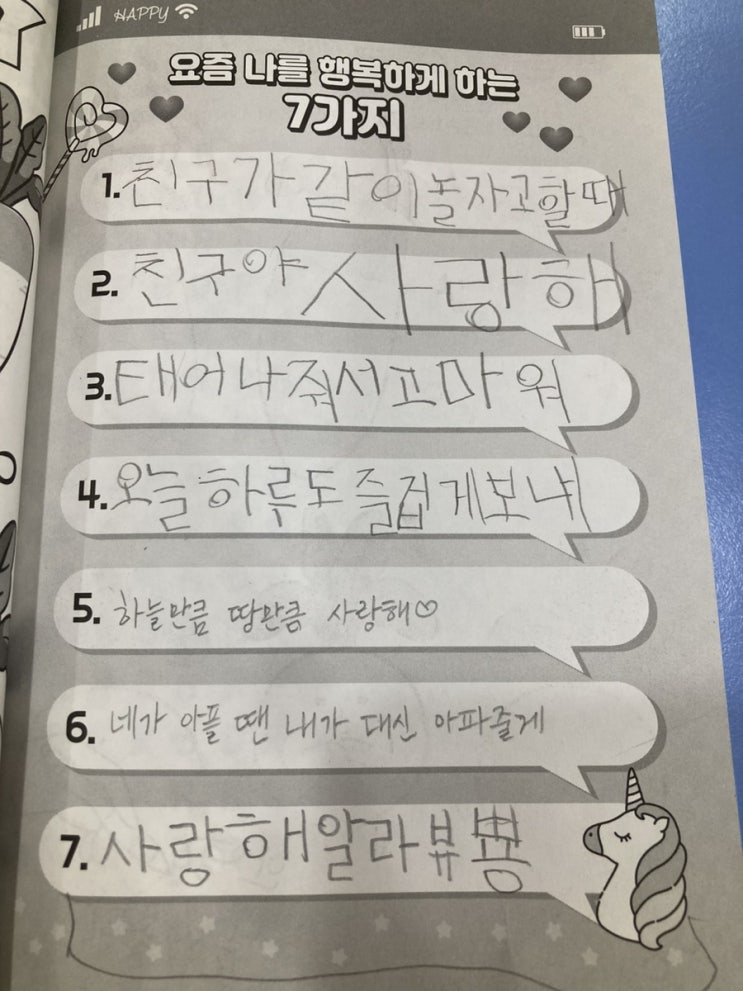 HAPPY
요즘 나를 행복하게 하는
7가지
1. 친구가 같이 놀자고 할 때
2. 친구야 사랑해
3. 태어나줘서 고마워
4. 오늘 하루도 즐겁게 보내
5. 하늘만큼 땅만큼 사랑해♡
6. 네가 아플 땐 내가 대신 아파줄게
7. 사랑해 알라뷰뿅